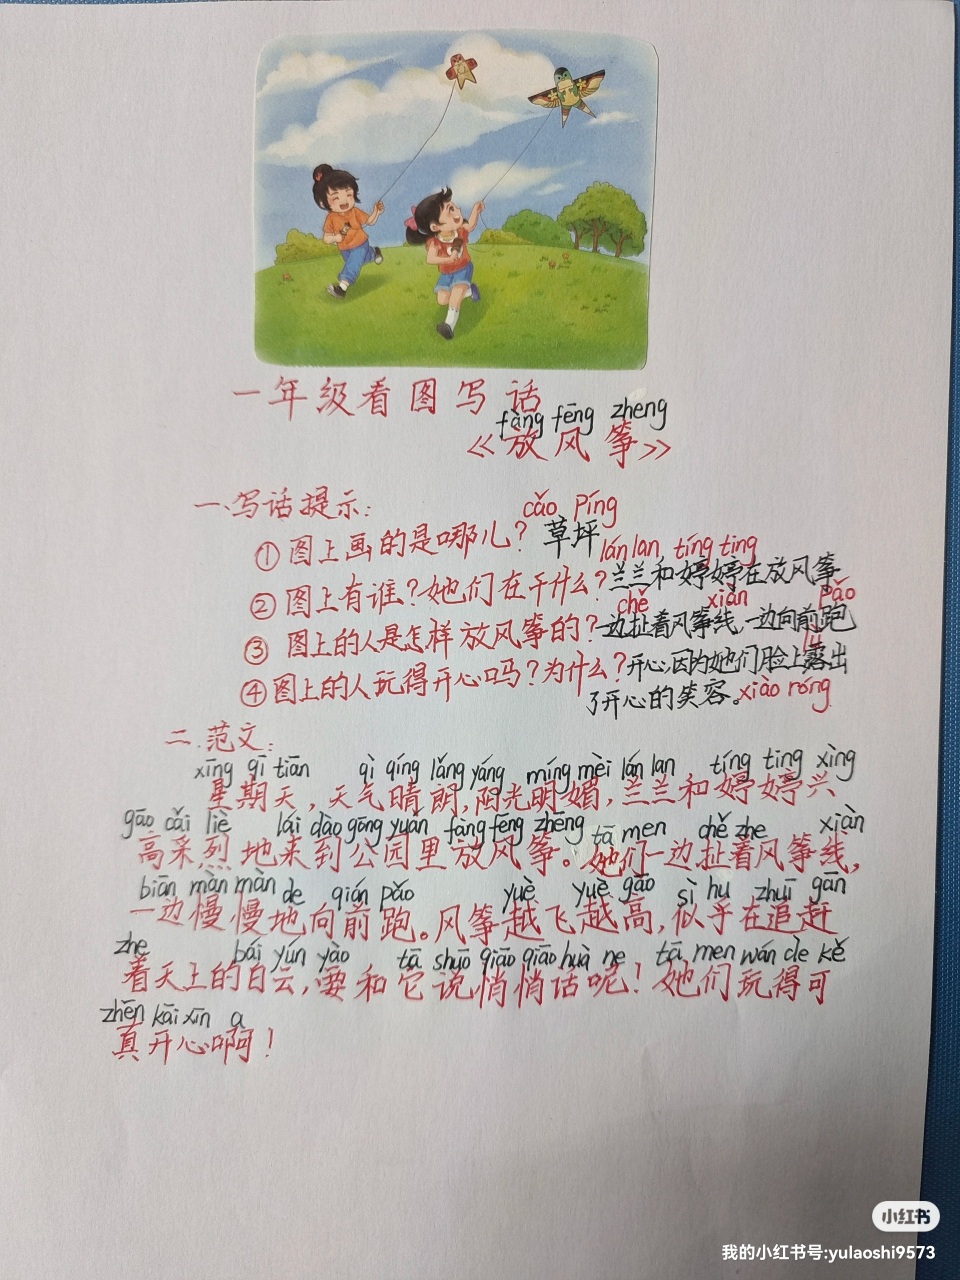 一年级看图写话
fàng fēng zheng
《放风筝》
一、写话提示:
cǎo píng
①图上画的是哪儿?草坪
lán lan, tíng ting
②图上有谁?她们在干什么?兰兰和婷婷在放风筝
chě xiàn pǎo
③图上的人是怎样放风筝的?一边扯着风筝线,一边向前跑
④图上的人玩得开心吗?为什么?开心,因为她们脸上露出
了开心的笑容。xiào róng
二.范文:
xīng qī tiān qì qíng lǎng yáng míng mèi lán lan tíng ting xìng
星期天,天气晴朗,阳光明媚,兰兰和婷婷兴
gāo cǎi liè lái dào gōng yuán fàng fēng zhēng tā men chě zhe xiàn
高采烈地来到公园里放风筝。她们一边扯着风筝线,
biān màn màn de qián pǎo yuè yuè gāo sì hu zhuī gǎn
一边慢慢地向前跑。风筝越飞越高,似乎在追赶
zhe bái yún yào tā shuō qiāo qiāo huà ne tā men wán de kě
着天上的白云,要和它说悄悄话呢!她们玩得可
zhēn kāi xīn a
真开心啊!
小红书
我的小红书号:yulaoshi9573